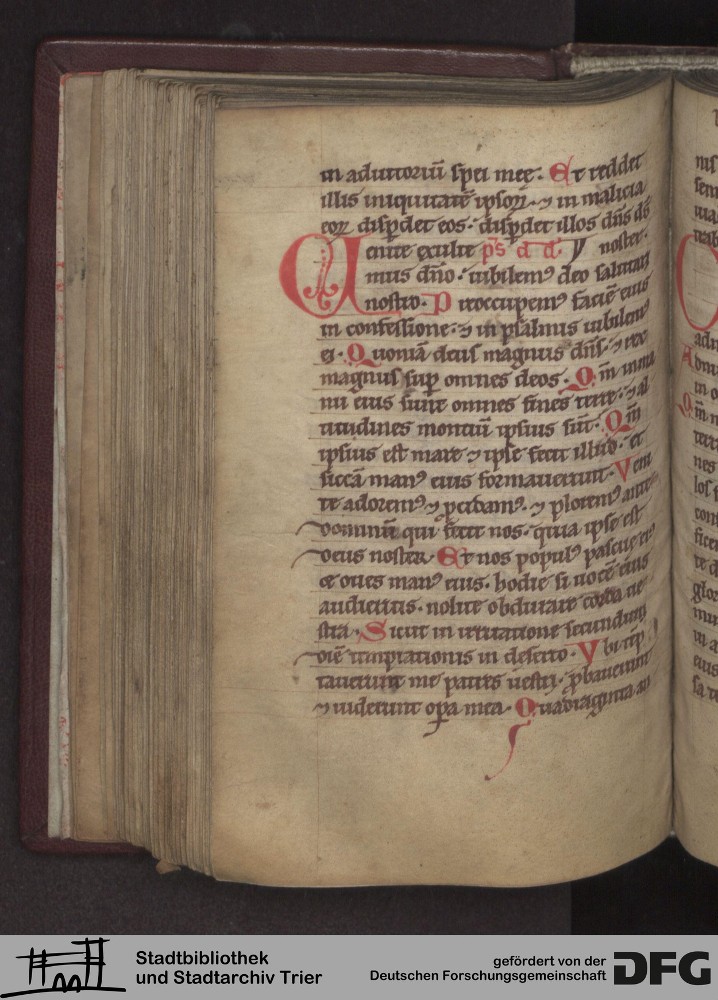 in adiutoriū spei meę. Et reddet
illis iniquitatē ipsoꝝ. ⁊ in malicia
eoꝝ disꝑdet eos. disꝑdet illos dn̄s ds̄
Uenite exulte ps̄ d d. noster.
mus dn̄o. iubilemꝰ deo salutari
nostro. Preoccupemꝰ faciē eius
in confessione. ⁊ in psalmis iubilemꝰ
ei. Quoniā deus magnus dn̄s. ⁊ rex
magnus suꝑ omnes deos. Qm̄ in ma
nu eius sunt omnes fines terre. ⁊ al
titudines montiū ipsius sūt. Qm̄
ipsius est mare ⁊ ipse fecit illud. et
siccā manꝰ eius formauerunt. Veni
te adoremꝰ ⁊ ꝓcidamꝰ. ⁊ ploremꝰ ante
dominū qui fecit nos. quia ipse est
deus noster. Et nos populꝰ pascue eiꝰ
oues manꝰ eius. hodie si uocē eius
audieritis. nolite obdurare corda ue
stra. Sicut in irritatione secundum
diē temptationis in deserto. Vbi tēp
tauerunt me patres uestri. ꝓbauerunt
⁊ uiderunt oꝑa mea. Quadraginta an
Stadtbibliothek
und Stadtarchiv Trier
gefördert von der
Deutschen Forschungsgemeinschaft
DFG